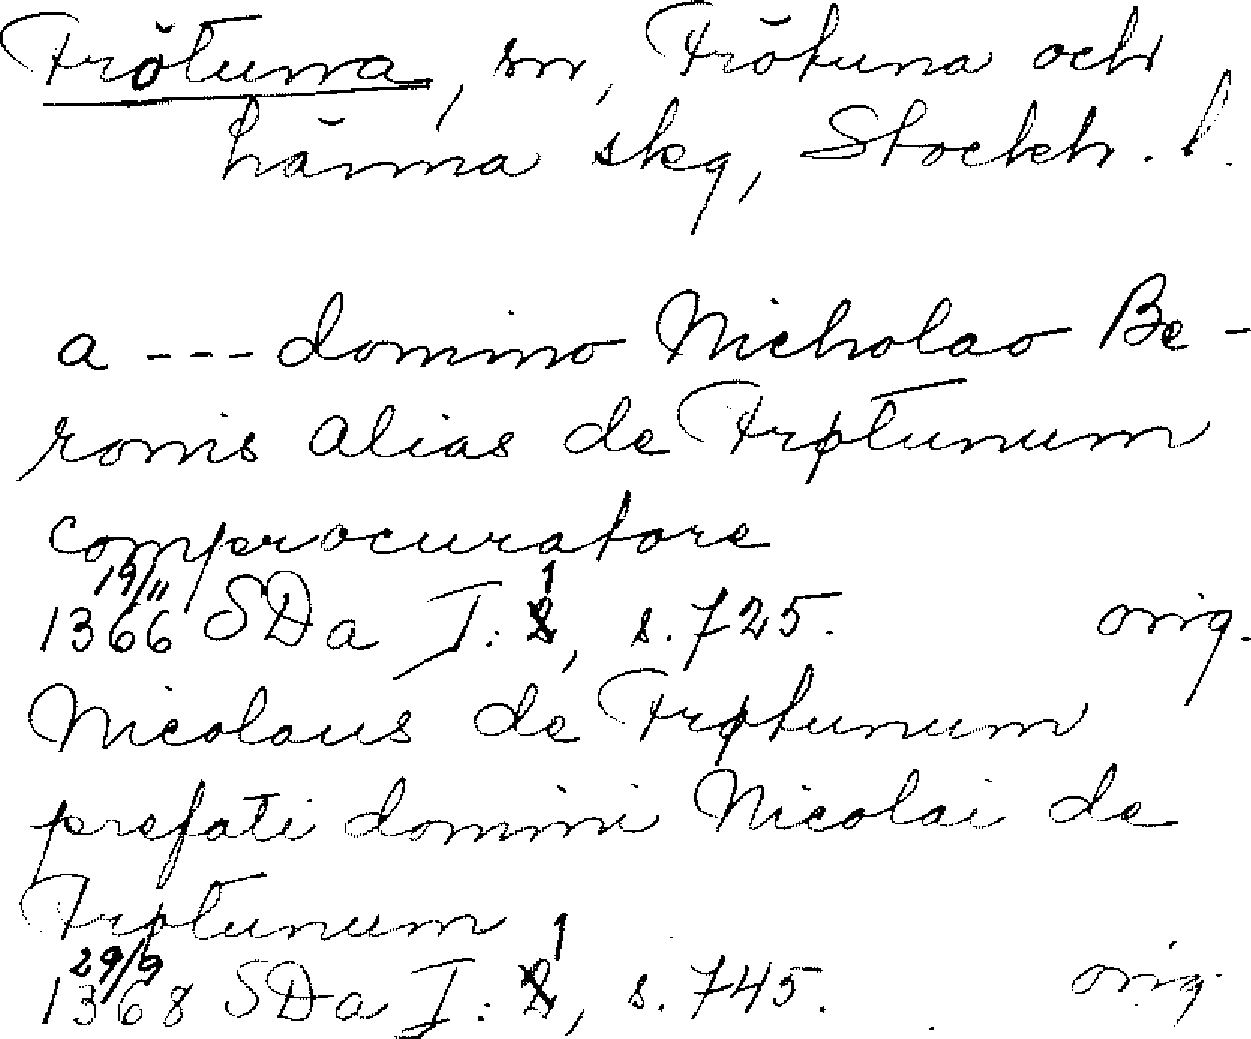 Frötuna, sn, Frötuna och
Länna skg, Stockh. l.
a --- domino Nicholao Be-
ronis alias de Frøtunum
comprocuratore
19/11 1
1366 SDa I: 2, s. 725. orig.
Nicolaus de Frøtunum
prefati domini Nicolai de
Frøtunum
29/9 1
1368 SDa I: 2, s. 745. orig.